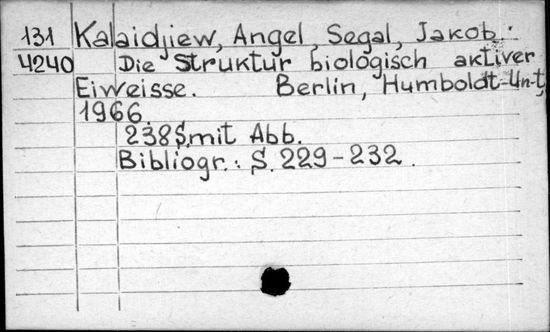 131 Kalaidjiew, Angel, Segal, Jakob:
4240 Die Struktur biologisch aktiver
Eiweisse. Berlin, Humboldt-Un-t,
1966.
238S.mit Abb.
Bibliogr.: S. 229-232.